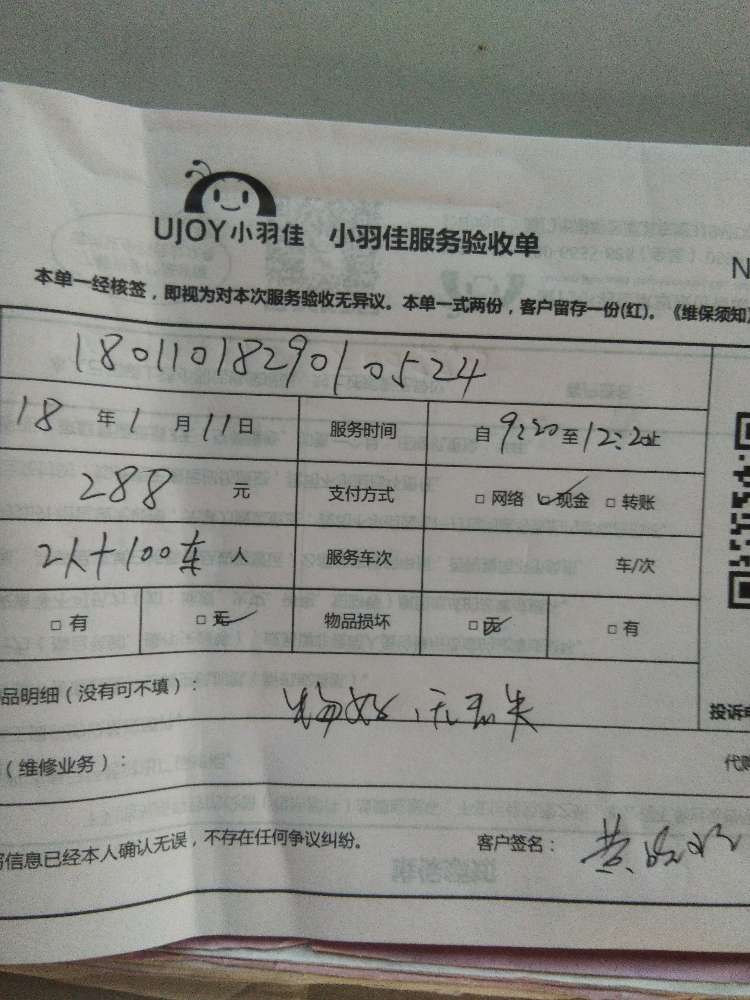 UJOY小羽佳 小羽佳服务验收单
N
本单一经核签，即视为对本次服务验收无异议。本单一式两份，客户留存一份(红)。《维保须知》
1801101829010524
18 年 1 月 11 日 服务时间 自 9:20 至 12:20止
288 元 支付方式 □ 网络 □ 现金 □ 转账
2人+100车 人 服务车次 车/次
□ 有 □ 无 物品损坏 □ 无 □ 有
品明细（没有可不填）：
（维修业务）：
投诉
代
信息已经本人确认无误，不存在任何争议纠纷。 客户签名： 黄